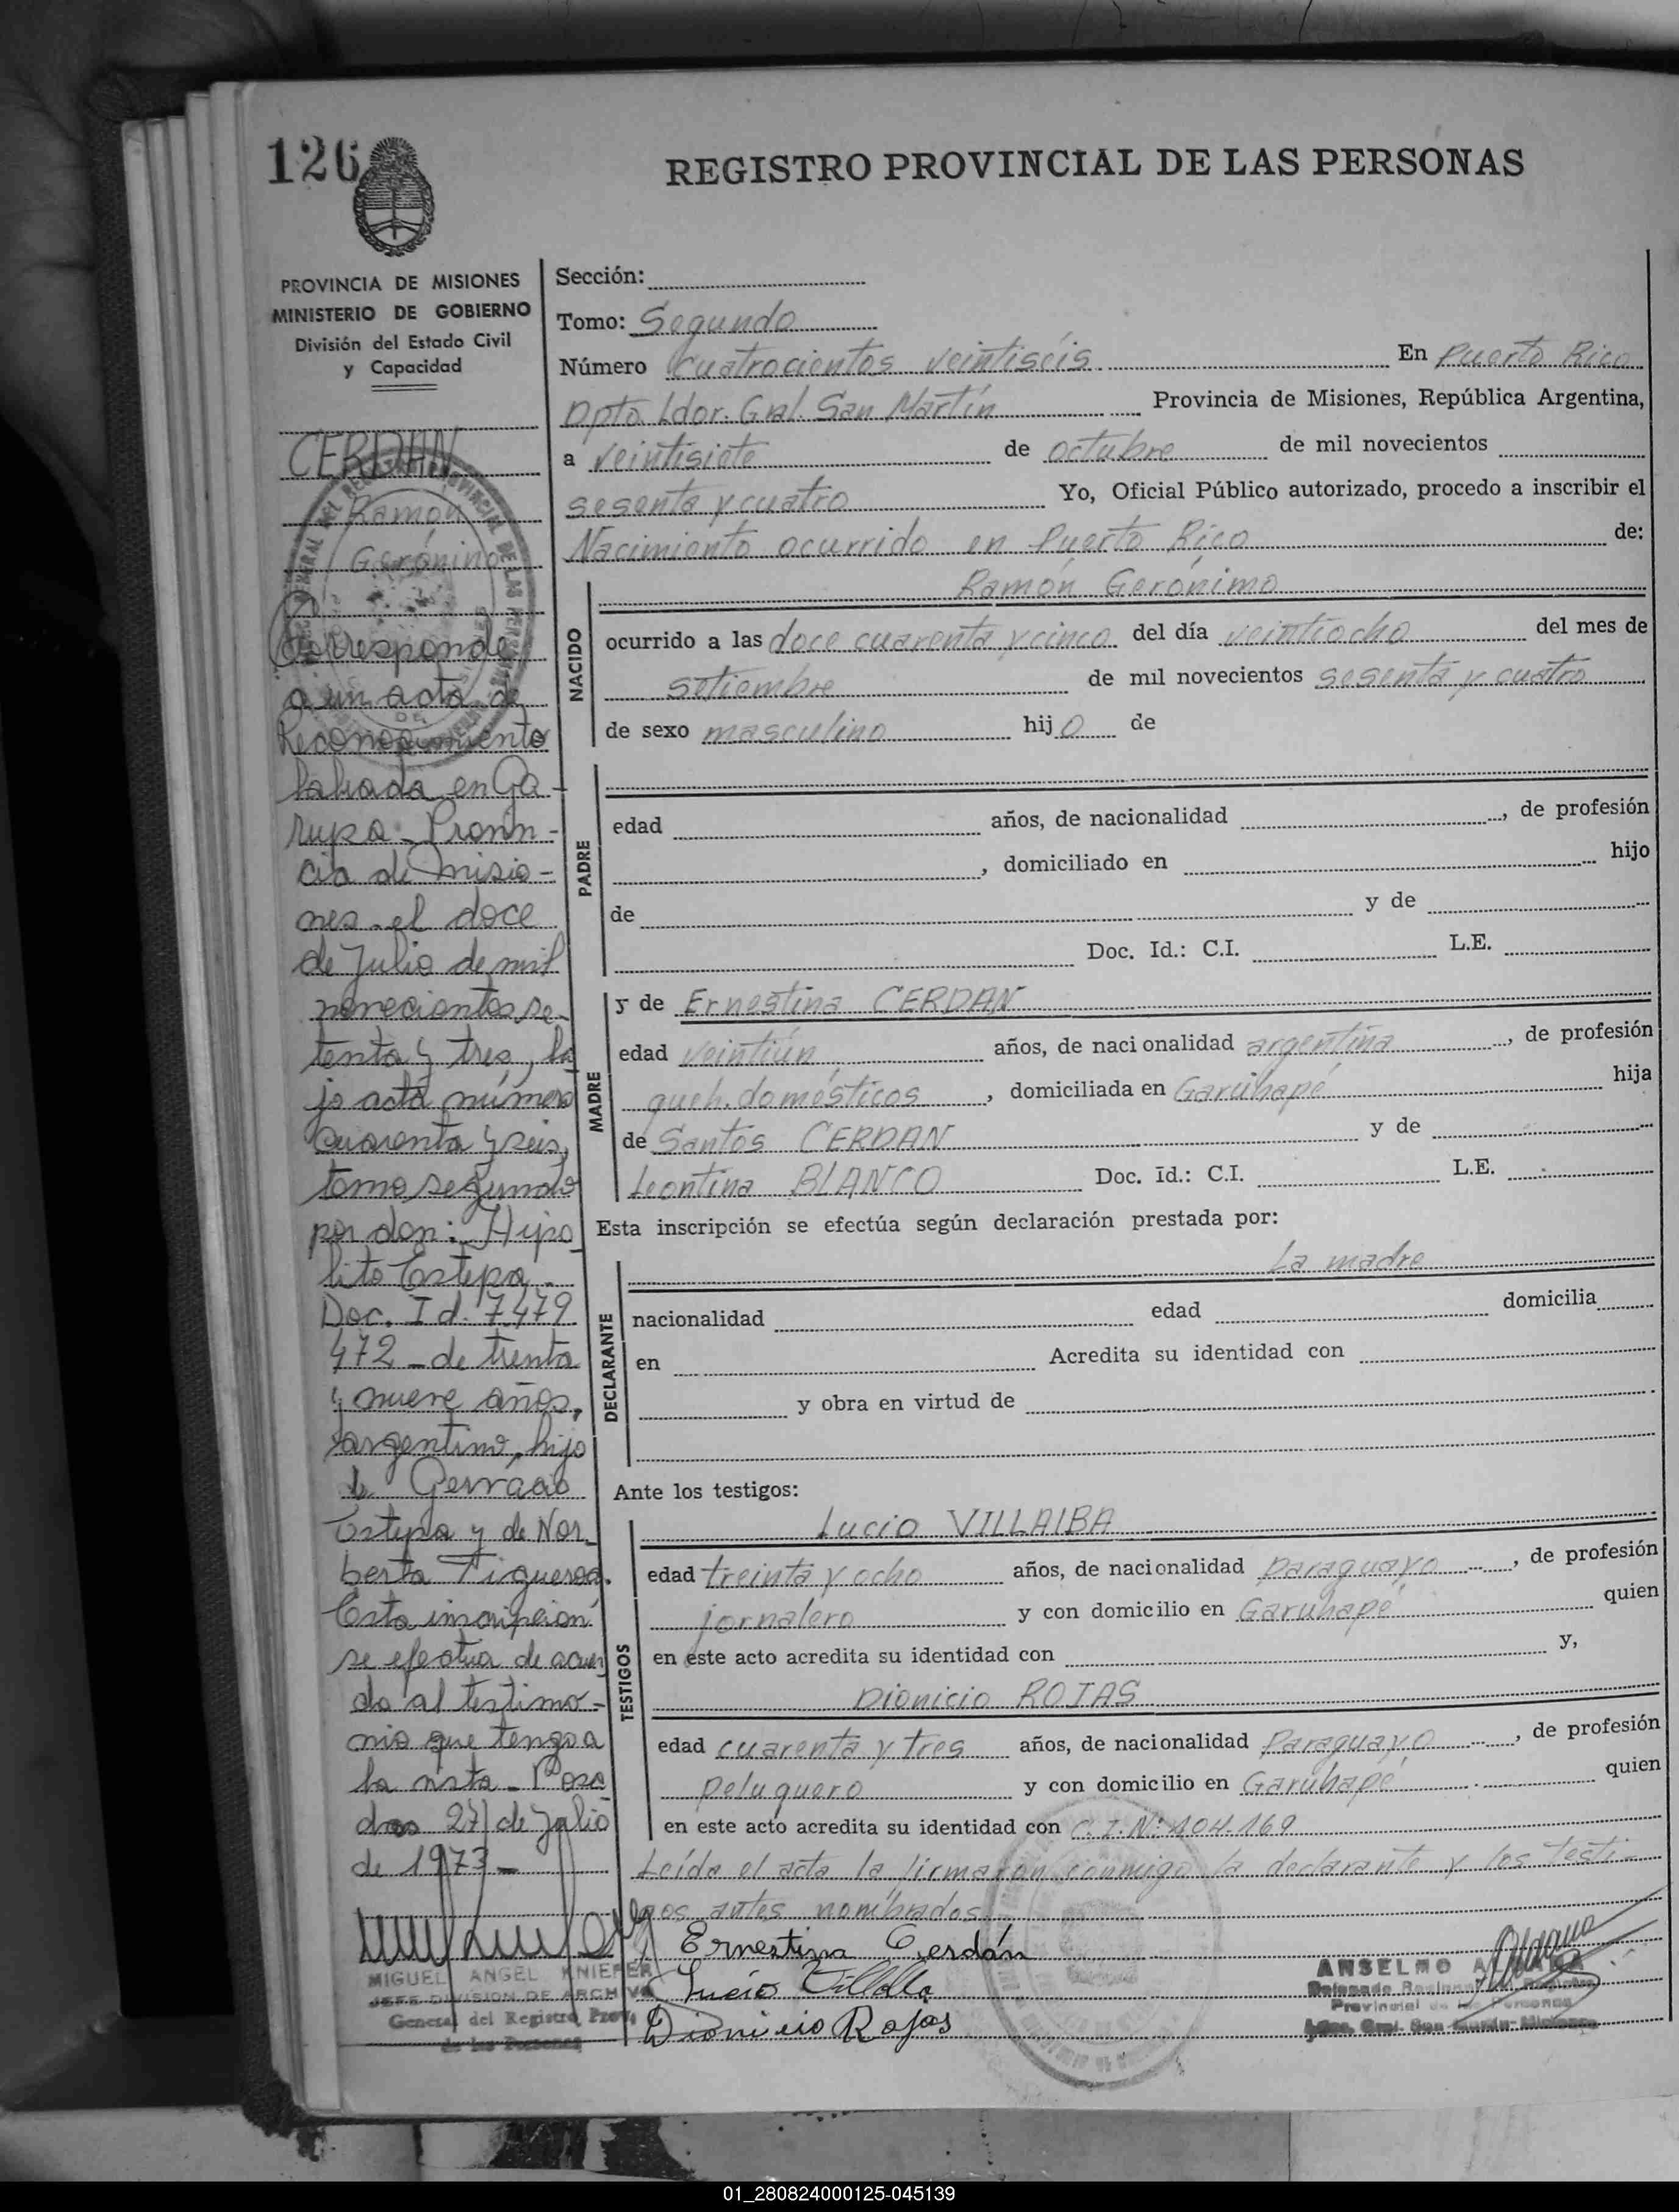 126
REGISTRO PROVINCIAL DE LAS PERSONAS
PROVINCIA DE MISIONES
MINISTERIO DE GOBIERNO
División del Estado Civil
y Capacidad
CERDAN
Ramón
Gerónimo
Corresponde
a un acta de
Reconocimiento
labrada en Ga-
rupa - Provin-
cia de Misio-
nes - el doce
de Julio de mil
novecientos se-
tenta y tres, ba
jo acta número
cuarenta y seis,
tomo segundo
por don: Hipo
lito Estepa -
Doc. Id. 7.479
472 - de treinta
y nueve años,
argentino, hijo
de Gervacio
Estepa y de Nor
berta Figueroa.
Esta inscripción
se efectua de acuer
do al testimo-
nio que tengo a
la vista - Posa
das 27 de Julio
de 1973 -
MIGUEL ANGEL KNIEPER
JEFE DIVISION DE ARCHIVO
General del Registro Prov.
de las Personas
Sección:
Tomo: Segundo
Número cuatrocientos veintiséis En Puerto Rico
Dpto. Ldor. Gral. San Martín Provincia de Misiones, República Argentina,
a veintisiete de octubre de mil novecientos
sesenta y cuatro Yo, Oficial Público autorizado, procedo a inscribir el
Nacimiento ocurrido en Puerto Rico de:
Ramón Gerónimo
NACIDO
ocurrido a las doce cuarenta y cinco del día veintiocho del mes de
setiembre de mil novecientos sesenta y cuatro
de sexo masculino hijo de
PADRE
edad años, de nacionalidad , de profesión
, domiciliado en hijo
de y de
Doc. Id.: C.I. L.E.
MADRE
y de Ernestina CERDAN
edad veintiún años, de nacionalidad argentina , de profesión
queh. domésticos , domiciliada en Garuhapé hija
de Santos CERDAN y de
Leontina BLANCO Doc. Id.: C.I. L.E.
Esta inscripción se efectúa según declaración prestada por:
La madre
DECLARANTE
nacionalidad edad domicilia
en Acredita su identidad con
y obra en virtud de
Ante los testigos:
TESTIGOS
Lucio VILLALBA
edad treinta y ocho años, de nacionalidad paraguayo , de profesión
jornalero y con domicilio en Garuhapé quien
en este acto acredita su identidad con y,
Dionicio ROJAS
edad cuarenta y tres años, de nacionalidad Paraguayo , de profesión
peluquero y con domicilio en Garuhapé quien
en este acto acredita su identidad con C.I.Nº: 104.169
Leída el acta la firmaron conmigo la declarante y los testi-
gos antes nombrados
Ernestina Cerdán
Lucio Villalba
Dionicio Rojas
ANSELMO
Provincial de las Personas
01_280824000125-045139